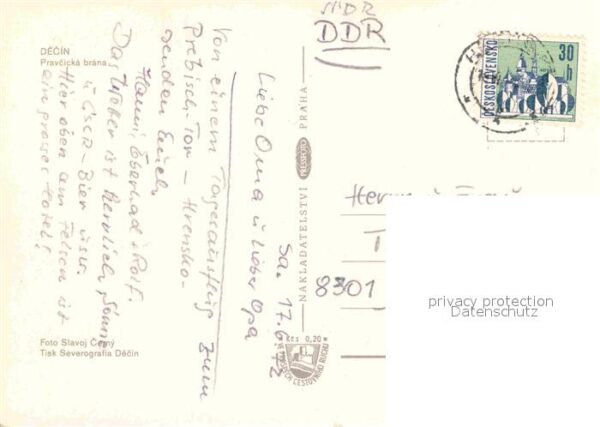 DĚČÍN
Pravčická brána
Sa. 17.6.72
Liebe Oma u lieber Opa
Von einem Tagesausflug zum
Prebisch-Tor – Hrensko
senden Euch
Hanni, Eberhard & Rolf.
Das Wetter ist herrlich, Sonne
u. ČSSR-Bier usw.
Hier oben am Felsen ist
ein grosses Hotel!
Foto Slavoj Černý
Tisk Severografia Děčín
NAKLADATELSTVÍ PRESSFOTO PRAHA
Kčs 0,20
CESTOVNÍHO RUCHU
DDR
DDR
ČESKOSLOVENSKO
30 h
8301
privacy protection
Datenschutz